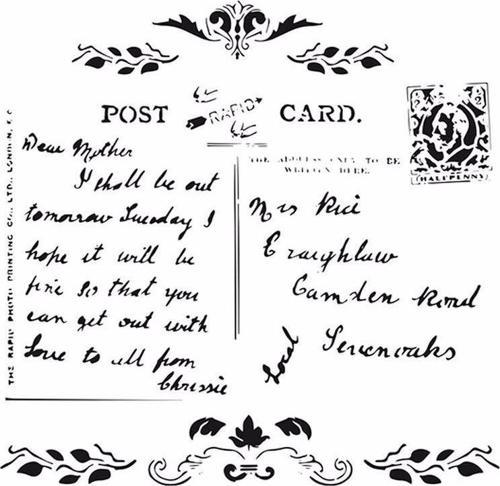 POST RAPID CARD.
THE ADDRESS ONLY TO BE
WRITTEN HERE.
HALFPENNY
Dear Mother
I shall be out
tomorrow Tuesday I
hope it will be
fine so that you
can get out with
Love to all from
Chrissie
Mrs Rice
Craighlaw
Camden Road
Sevenoaks
Local
THE RAPID PHOTO PRINTING CO., LTD., LONDON, E.C